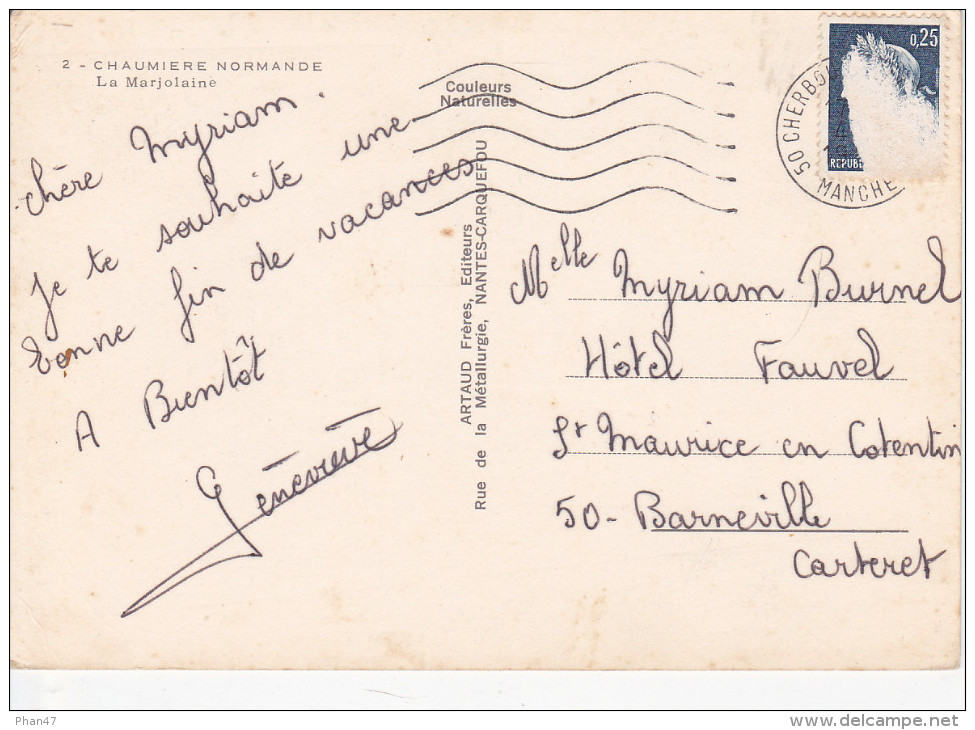 2 - CHAUMIERE NORMANDE
La Marjolaine
chère Myriam.
Je te souhaite une
bonne fin de vacances
A Bientôt
Geneviève
Couleurs
Naturelles
ARTAUD Frères, Editeurs
Rue de la Métallurgie, NANTES-CARQUEFOU
0,25
50 CHERBO
MANCHE
Melle Myriam Burnel
Hôtel Fauvel
St Maurice en Cotentin
50 - Barneville
Carteret
Phan47
delcampe.net